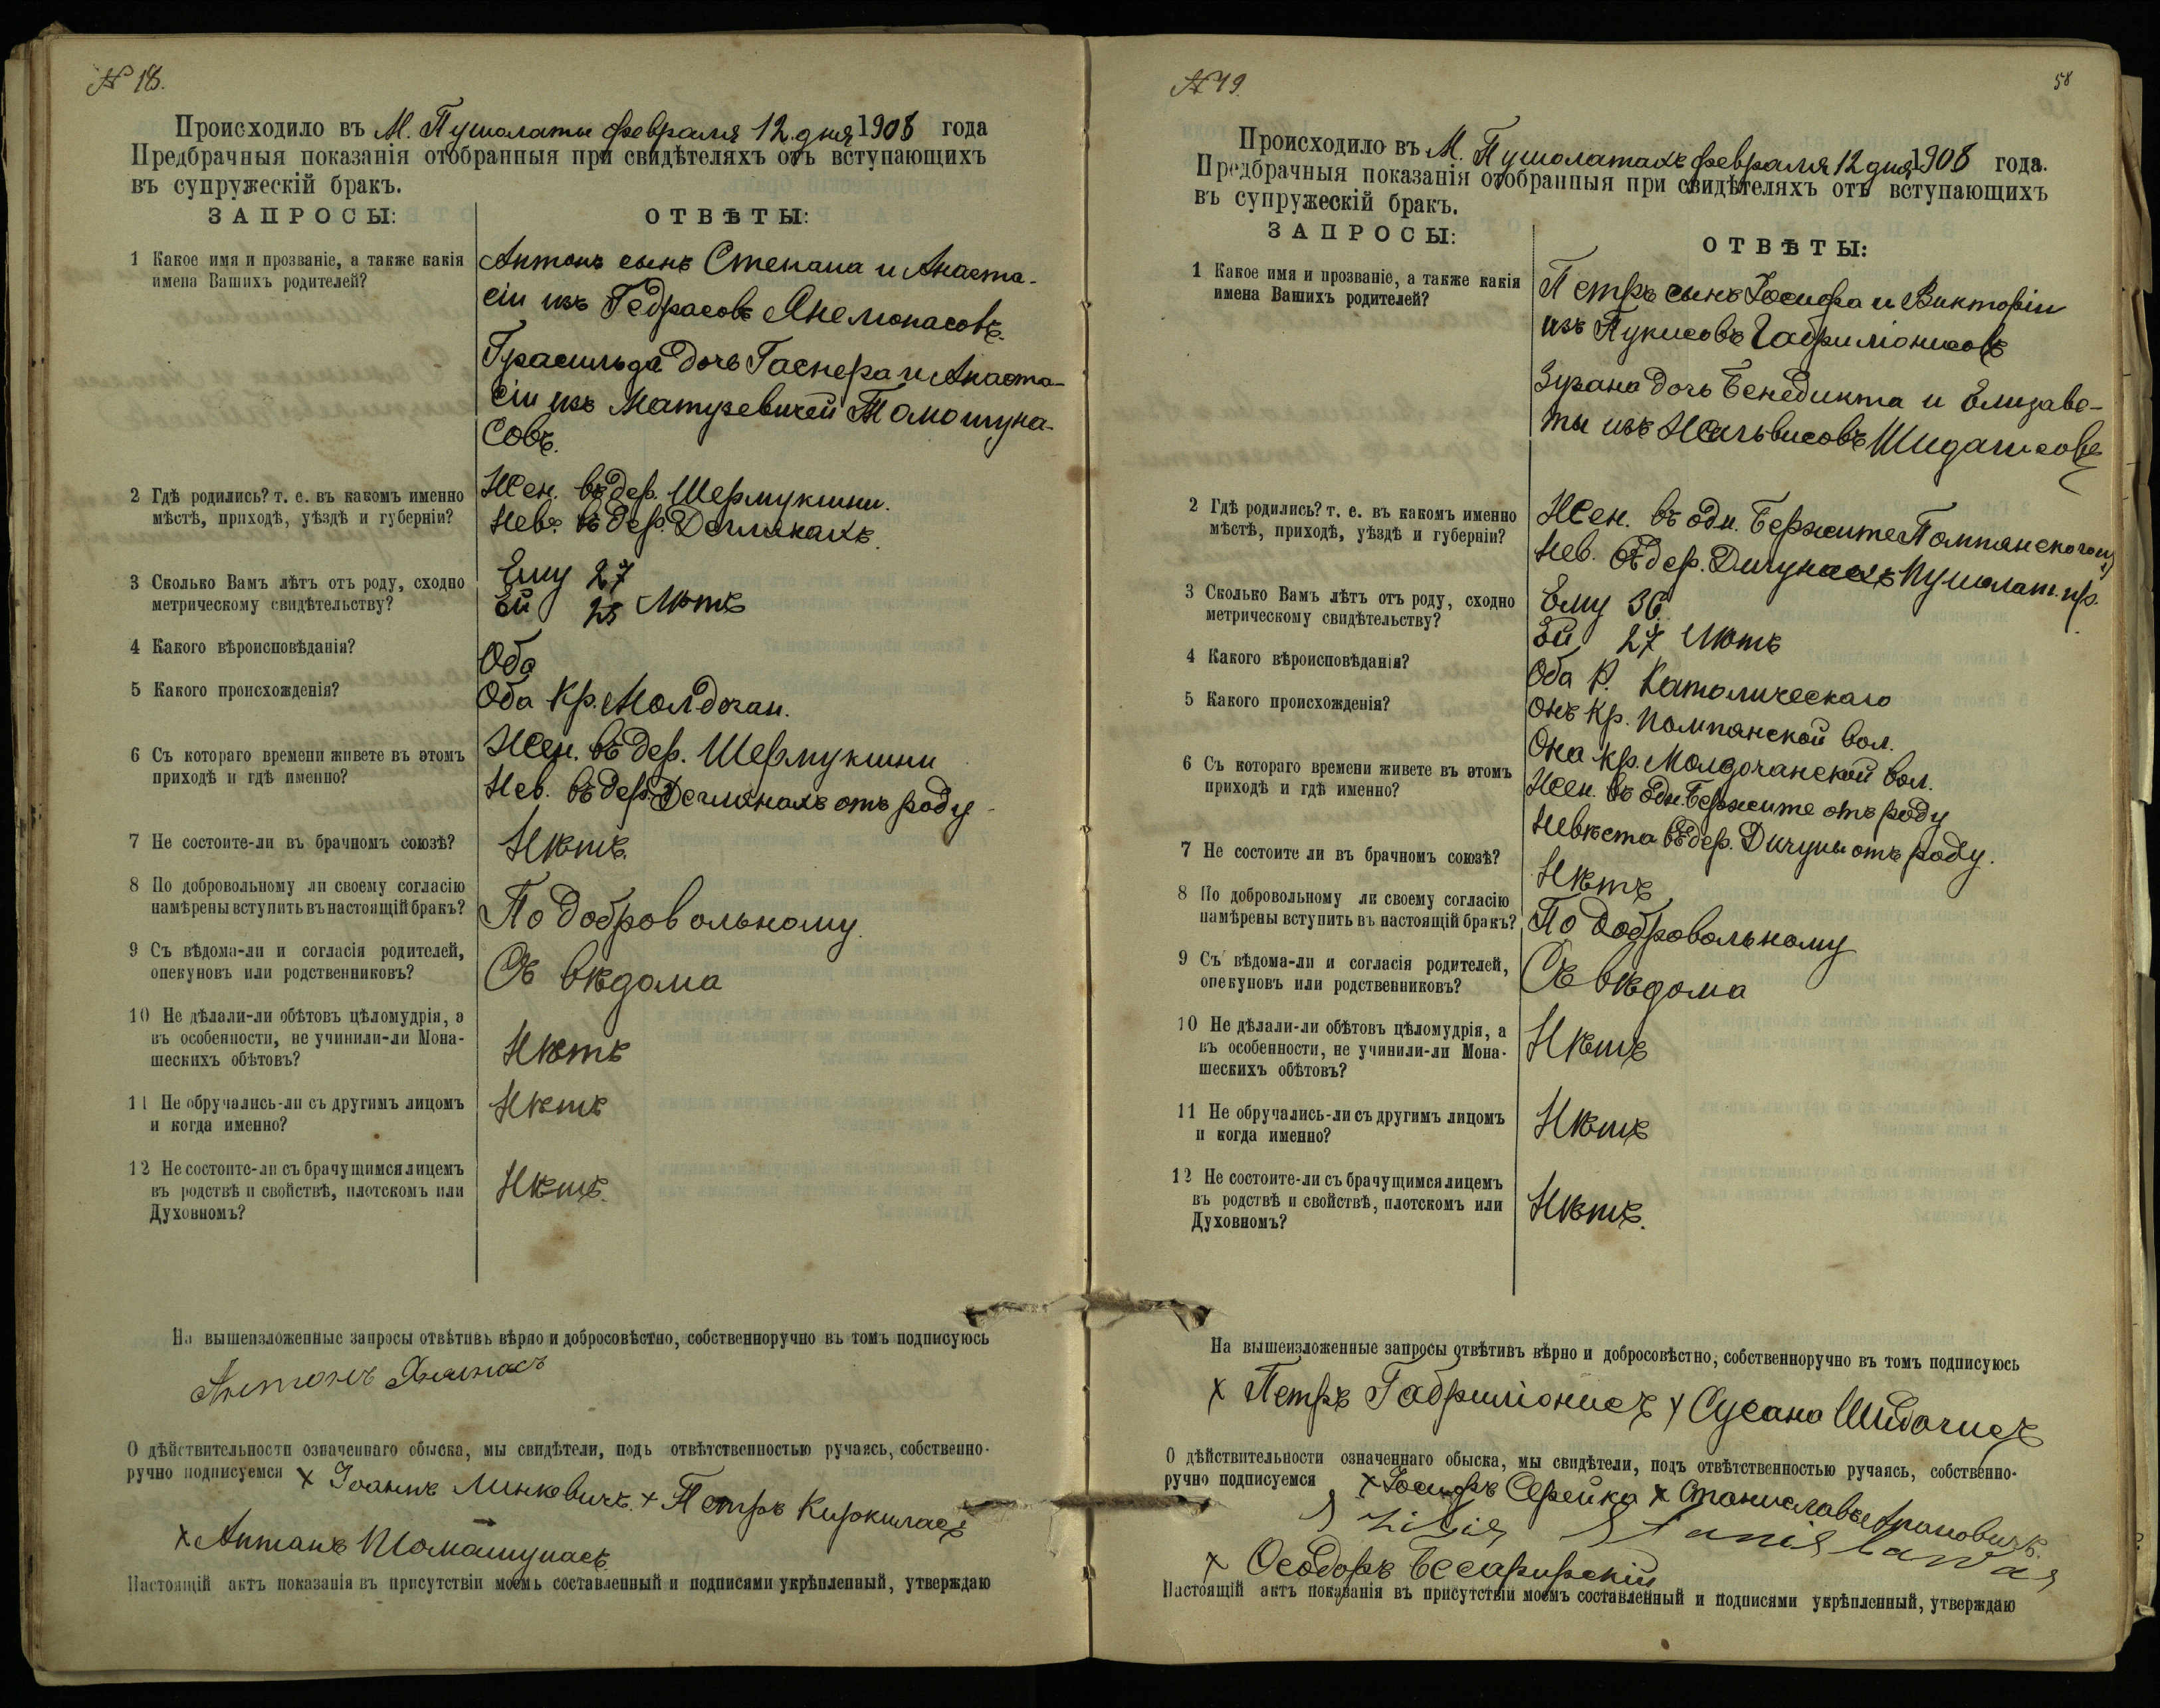 № 18.
Происходило въ М. Пушолаты февраля 12 дня 1908 года
Предбрачныя показанія отобранныя при свидѣтеляхъ отъ вступающихъ
въ супружескій бракъ.
ЗАПРОСЫ: ОТВѢТЫ:
1 Какое имя и прозваніе, а также какія
имена Вашихъ родителей?
Антонъ сынъ Степана и Анаста-
сіи изъ Гедрасовъ
дочь Гаспера и Анаста-
сіи изъ Матузевичей Томошуна-
совъ.
2 Гдѣ родились? т. е. въ какомъ именно
мѣстѣ, приходѣ, уѣздѣ и губерніи?
Жен. въ дер. Шермукшни.
Нев. въ дер.
3 Сколько Вамъ лѣтъ отъ роду, сходно
метрическому свидѣтельству?
Ему 27
Ей 23 лѣтъ
4 Какого вѣроисповѣданія?
Оба
5 Какого происхожденія?
Оба кр. Молдочан.
6 Съ котораго времени живете въ этомъ
приходѣ и гдѣ именно?
Жен. въ дер. Шермукшни
Нев. въ дер. отъ роду
7 Не состоите-ли въ брачномъ союзѣ?
Нѣтъ.
8 По добровольному ли своему согласію
намѣрены вступить въ настоящій бракъ?
По добровольному.
9 Съ вѣдома-ли и согласія родителей,
опекуновъ или родственниковъ?
Съ вѣдома
10 Не дѣлали-ли обѣтовъ цѣломудрія, а
въ особенности, не учинили-ли Мона-
шескихъ обѣтовъ?
Нѣтъ
11 Не обручались-ли съ другимъ лицомъ
и когда именно?
Нѣтъ
12 Не состоите-ли съ брачущимся лицемъ
въ родствѣ и свойствѣ, плотскомъ или
Духовномъ?
Нѣтъ.
На вышеизложенные запросы отвѣтивъ вѣрно и добросовѣстно, собственноручно въ томъ подписуюсь
Антонъ
О дѣйствительности означеннаго обыска, мы свидѣтели, подъ отвѣтственностью ручаясь, собственно-
ручно подписуемся х Іоаннъ Линкевичъ. х Петръ Киркиласъ
х Антанъ Томашунасъ.
Настоящій актъ показанія въ присутствіи моемъ составленный и подписями укрѣпленный, утверждаю
№ 19. 58
Происходило въ М. Пушолатахъ февраля 12 дня 1908 года.
Предбрачныя показанія отобранныя при свидѣтеляхъ отъ вступающихъ
въ супружескій бракъ.
ЗАПРОСЫ: ОТВѢТЫ:
1 Какое имя и прозваніе, а также какія
имена Вашихъ родителей?
Петръ сынъ Іосифа и Викторіи
изъ Пукисовъ Габриліонисовъ
Зузана дочь Бенедикта и Елизаве-
ты изъ Шидагисовъ
2 Гдѣ родились? т. е. въ какомъ именно
мѣстѣ, приходѣ, уѣздѣ и губерніи?
Жен. въ одн. Бержите
Нев. въ дер. Пушолат. пр.
3 Сколько Вамъ лѣтъ отъ роду, сходно
метрическому свидѣтельству?
Ему 36.
Ей 27 лѣтъ
4 Какого вѣроисповѣданія?
Оба Р. Католическаго
5 Какого происхожденія?
Онъ кр. Помпянской вол.
Она кр. Молдочанской вол.
6 Съ котораго времени живете въ этомъ
приходѣ и гдѣ именно?
Жен. въ одн. Бержите отъ роду
Невѣста въ дер. Дичуны отъ роду.
7 Не состоите ли въ брачномъ союзѣ?
Нѣтъ
8 По добровольному ли своему согласію
намѣрены вступить въ настоящій бракъ?
По добровольному
9 Съ вѣдома-ли и согласія родителей,
опекуновъ или родственниковъ?
Съ вѣдома
10 Не дѣлали-ли обѣтовъ цѣломудрія, а
въ особенности, не учинили-ли Мона-
шескихъ обѣтовъ?
Нѣтъ
11 Не обручались-ли съ другимъ лицомъ
и когда именно?
Нѣтъ
12 Не состоите-ли съ брачущимся лицемъ
въ родствѣ и свойствѣ, плотскомъ или
Духовномъ?
Нѣтъ.
На вышеизложенные запросы отвѣтивъ вѣрно и добросовѣстно, собственноручно въ томъ подписуюсь
х Петръ Габриліонисъ х Сусана Шидагисъ
О дѣйствительности означеннаго обыска, мы свидѣтели, подъ отвѣтственностью ручаясь, собственно-
ручно подписуемся х Іосифъ Серейка х Станиславъ
Stanislawas
х Ѳеодоръ
Настоящій актъ показанія въ присутствіи моемъ составленный и подписями укрѣпленный, утверждаю